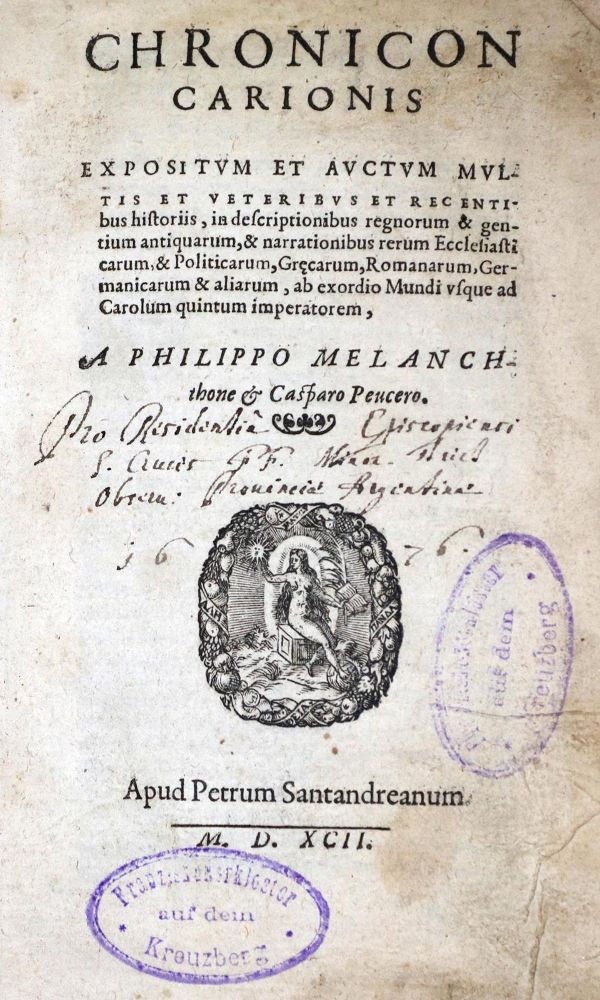 CHRONICON
CARIONIS
EXPOSITVM ET AVCTVM MVL-
TIS ET VETERIBVS ET RECENTI-
bus hiſtoriis, in deſcriptionibus regnorum & gen-
tium antiquarum, & narrationibus rerum Eccleſiaſti
carum, & Politicarum, Gręcarum, Romanarum, Ger-
manicarum & aliarum, ab exordio Mundi vſque ad
Carolum quintum imperatorem,
A PHILIPPO MELANCH-
thone & Caſparo Peucero.
Pro Residentiâ Episcopienſi
S. Crucis FF. Minor. Strict
Obseru: Prouinciæ Argentinæ
1676.
Franziskanerkloster
auf dem
Kreuzberg
Apud Petrum Santandreanum.
M. D. XCII.
Franziskanerkloster
auf dem
Kreuzberg